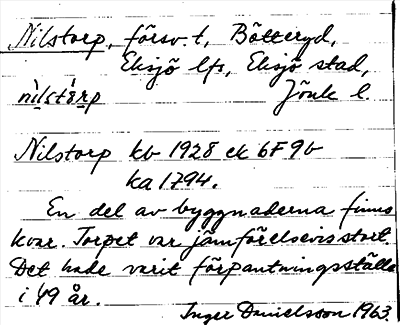 Nilstorp, försv. t, Bötteryd,
Eksjö lfs, Eksjö stad,
nìlstårp Jönk l.
Nilstorp kb 1928 ek 6F9b
ka 1794.
En del av byggnaderna finns
kvar. Torpet var jämförelsevis stort.
Det hade varit förpantningsställe
i 49 år.
Inger Danielsson 1963.